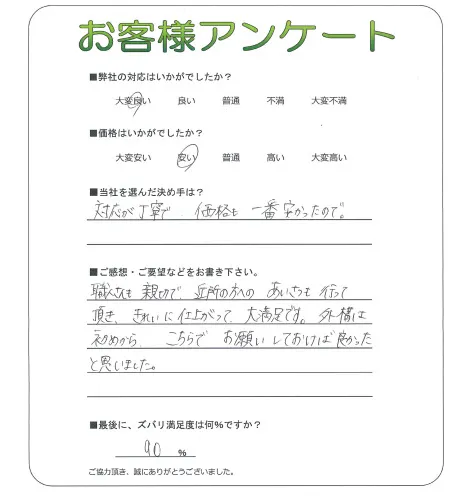 お客様アンケート
■弊社の対応はいかがでしたか？
大変良い 良い 普通 不満 大変不満
■価格はいかがでしたか？
大変安い 安い 普通 高い 大変高い
■当社を選んだ決め手は？
対応が丁寧で 価格も 一番安かったので。
■ご感想・ご要望などをお書き下さい。
職人さんも 親切で、近所の方への あいさつも 行って
頂き、きれいに 仕上がって、大満足です。外構は
初めから、こちらで お願いしておけば 良かった
と思いました。
■最後に、ズバリ満足度は何％ですか？
90 ％
ご協力頂き、誠にありがとうございました。